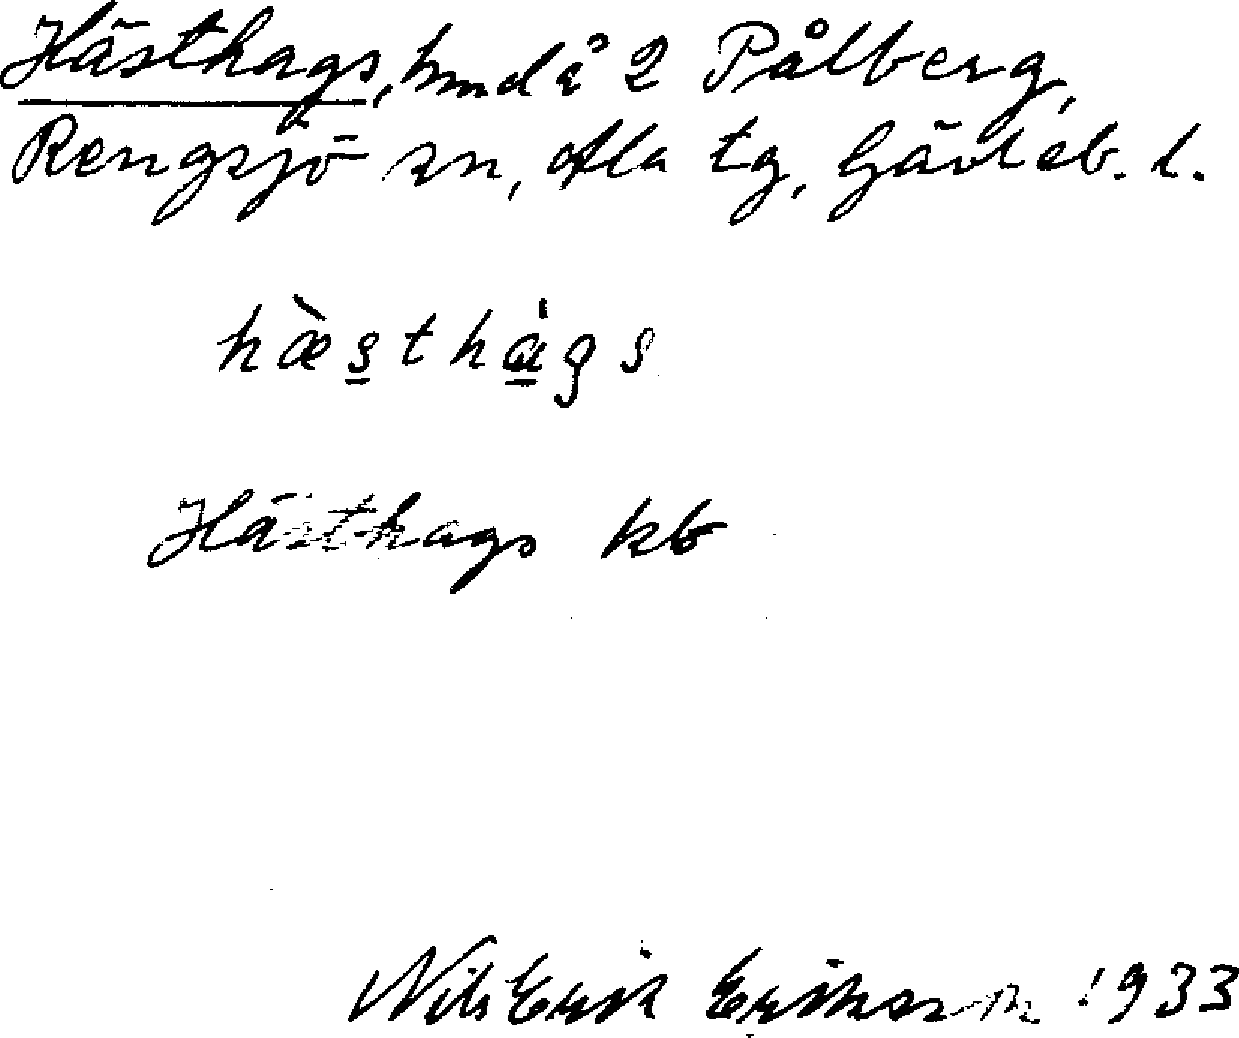 Hästhags, hmd å 2 Pålberg,
Rengsjö sn, Ala tg, Gävleb. l.
hæ̀s̲tha̲̍gs
Hästhags kb
Nils Erik Eriksson 1933